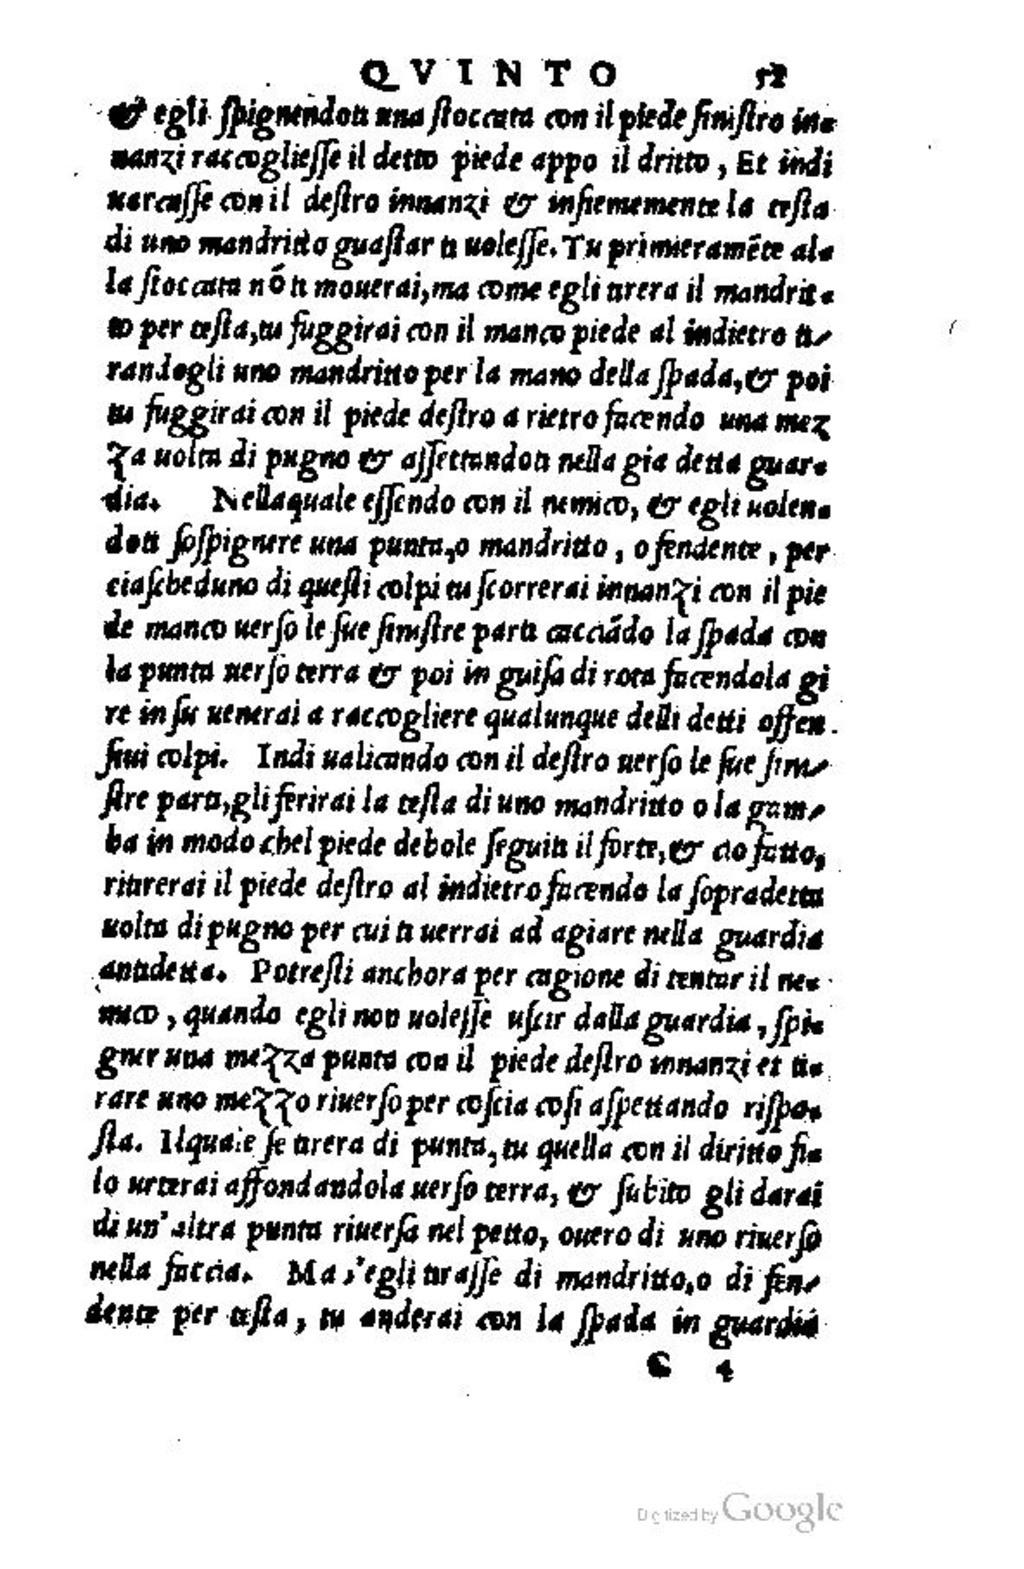 QVINTO 52
& egli spignendoti una stoccata con il piede sinistro in-
nanzi raccogliesse il detto piede appo il dritto, Et indi
uarcasse con il destro innanzi & insiememente la testa
di uno mandritto guastar ti uolesse. Tu primieramẽte al-
la stoccata nõ ti mouerai, ma come egli tirera il mandrit-
to per testa, tu fuggirai con il manco piede al indietro ti-
randogli uno mandritto per la mano della spada, & poi
tu fuggirai con il piede destro a rietro facendo una mez
za uolta di pugno & assettandoti nella gia detta guar-
dia. Nellaquale essendo con il nemico, & egli uolen-
doti sospignere una punta, o mandritto, o fendente, per
ciascheduno di questi colpi tu scorrerai innanzi con il pie
de manco uerso le sue sinistre parti cacciãdo la spada con
la punta uerso terra & poi in guisa di rota facendola gi
re in su uenerai a raccogliere qualunque delli detti offen
siui colpi. Indi ualicando con il destro uerso le sue sini-
stre parti, gli ferirai la testa di uno mandritto o la gam-
ba in modo chel piede debole seguiti il forte, & cio fatto,
ritirerai il piede destro al indietro facendo la sopradetta
uolta di pugno per cui ti uerrai ad agiare nella guardia
antidetta. Potresti anchora per cagione di tentar il ne-
mico, quando egli non uolesse uscir dalla guardia, spi-
gner una mezza punta con il piede destro innanzi et ti-
rare uno mezzo riuerso per coscia cosi aspettando rispo-
sta. Ilquale se tirera di punta, tu quella con il diritto fi-
lo urterai affondandola uerso terra, & subito gli darai
di un'altra punta riuersa nel petto, ouero di uno riuerso
nella faccia. Ma s'egli tirasse di mandritto, o di fen-
dente per testa, tu anderai con la spada in guardia
G 4
Digitized by Google